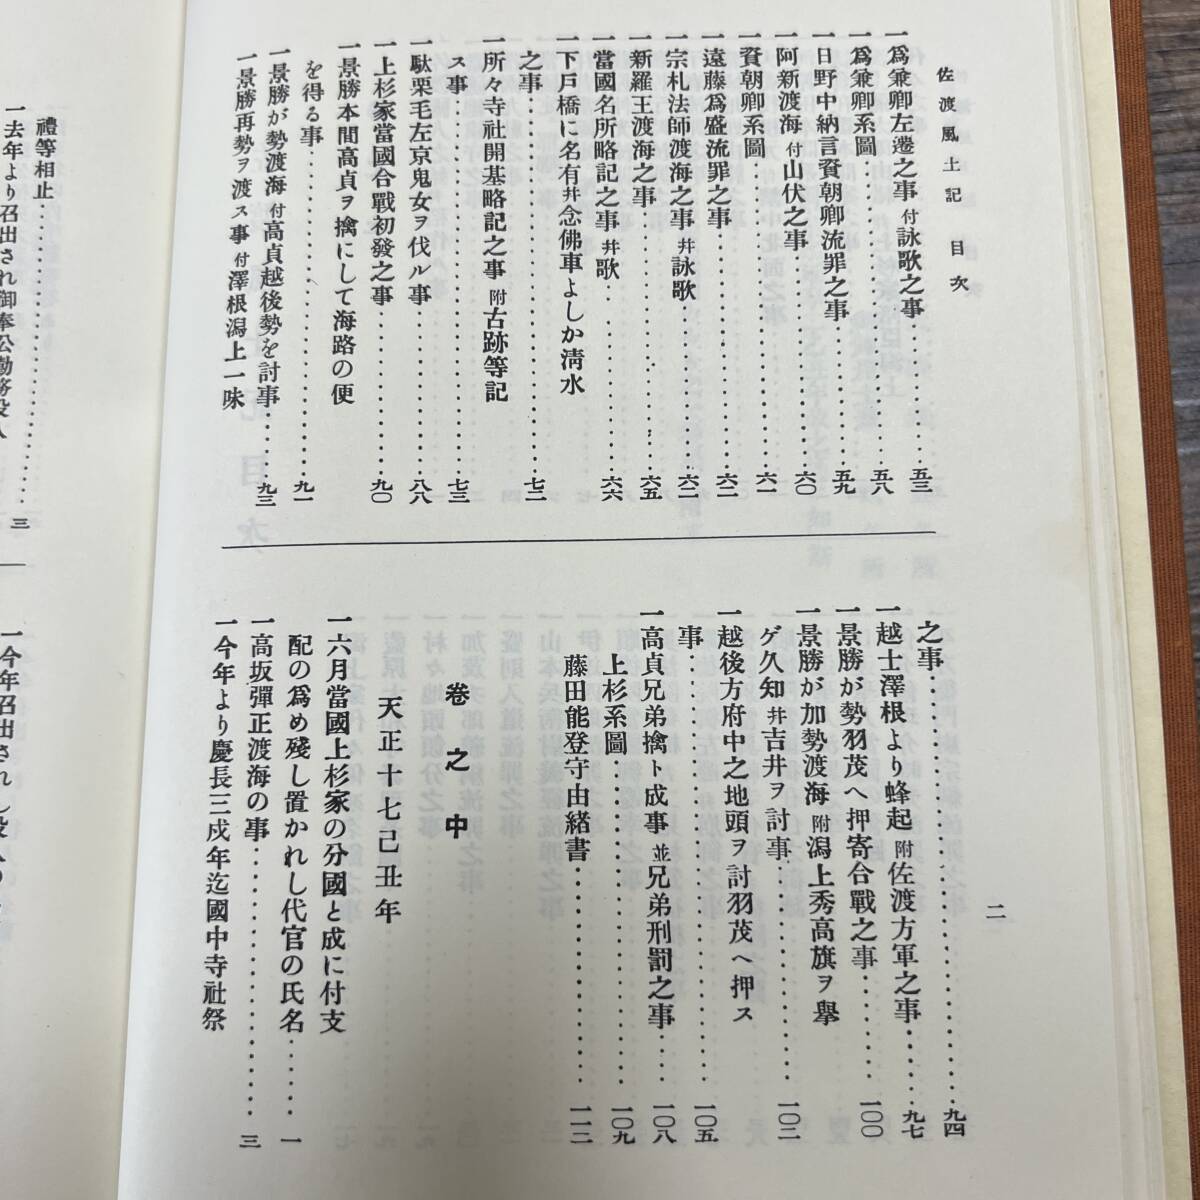 佐渡風土記 目次
一爲兼卿左遷之事 付 詠歌之事‥‥‥五三
一爲兼卿系圖‥‥‥五八
一日野中納言資朝卿流罪之事‥‥‥五九
一阿新渡海 付 山伏之事‥‥‥六〇
一資朝卿系圖‥‥‥六一
一遠藤爲盛流罪之事‥‥‥六二
一宗札法師渡海之事 幷 詠歌‥‥‥六二
一新羅王渡海之事‥‥‥六五
一當國名所略記之事 幷 歌‥‥‥六六
一下戸橋に名有 幷 念佛車よしか淸水
之事‥‥‥七二
一所々寺社開基略記之事 附 古跡等記
ス事‥‥‥七三
一駄栗毛左京鬼女ヲ伐ル事‥‥‥八八
一上杉家當國合戰初發之事‥‥‥九〇
一景勝本間高貞ヲ擒にして海路の便
を得る事‥‥‥九一
一景勝が勢渡海 付 高貞越後勢を討事‥‥‥九三
一景勝再勢ヲ渡ス事 付 澤根潟上一味
之事‥‥‥九四
一越士澤根より蜂起 附 佐渡方軍之事‥‥‥九七
一景勝が勢羽茂へ押寄合戰之事‥‥‥一〇〇
一景勝が加勢渡海 附 潟上秀高旗ヲ擧
ゲ久知 幷 吉井ヲ討事‥‥‥一〇二
一越後方府中之地頭ヲ討羽茂へ押ス
事‥‥‥一〇五
一高貞兄弟擒ト成事 並 兄弟刑罰之事‥‥‥一〇八
上杉系圖‥‥‥一〇九
藤田能登守由緒書‥‥‥一一二
卷之中
天正十七己丑年
一六月當國上杉家の分國と成に付支
配の爲め殘し置かれし代官の氏名‥‥‥一
一高坂彈正渡海の事‥‥‥三
一今年より慶長三戍年迄國中寺社祭
二
禮等相止‥‥‥三
一去年より召出され御奉公勤務役人
一今年召出されし役人の